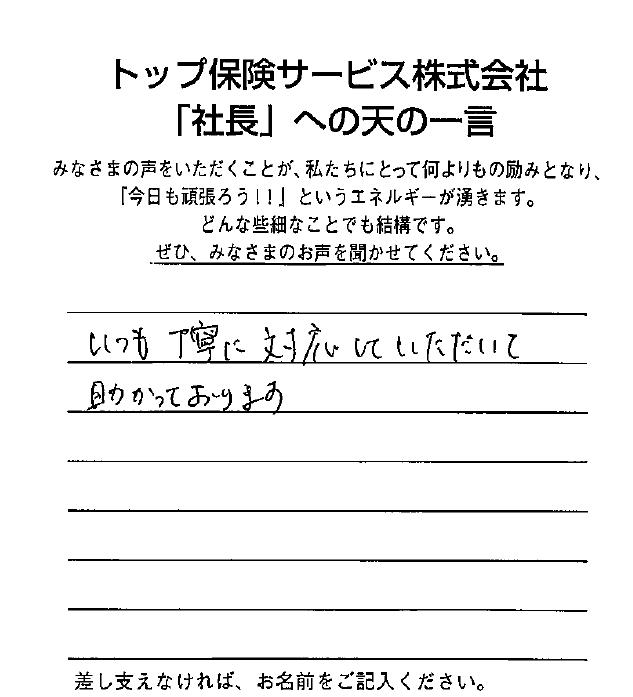 トップ保険サービス株式会社
「社長」への天の一言
みなさまの声をいただくことが、私たちにとって何よりもの励みとなり、
『今日も頑張ろう！！』というエネルギーが湧きます。
どんな些細なことでも結構です。
ぜひ、みなさまのお声を聞かせてください。
いつも丁寧に対応していただいて
助かっております
差し支えなければ、お名前をご記入ください。